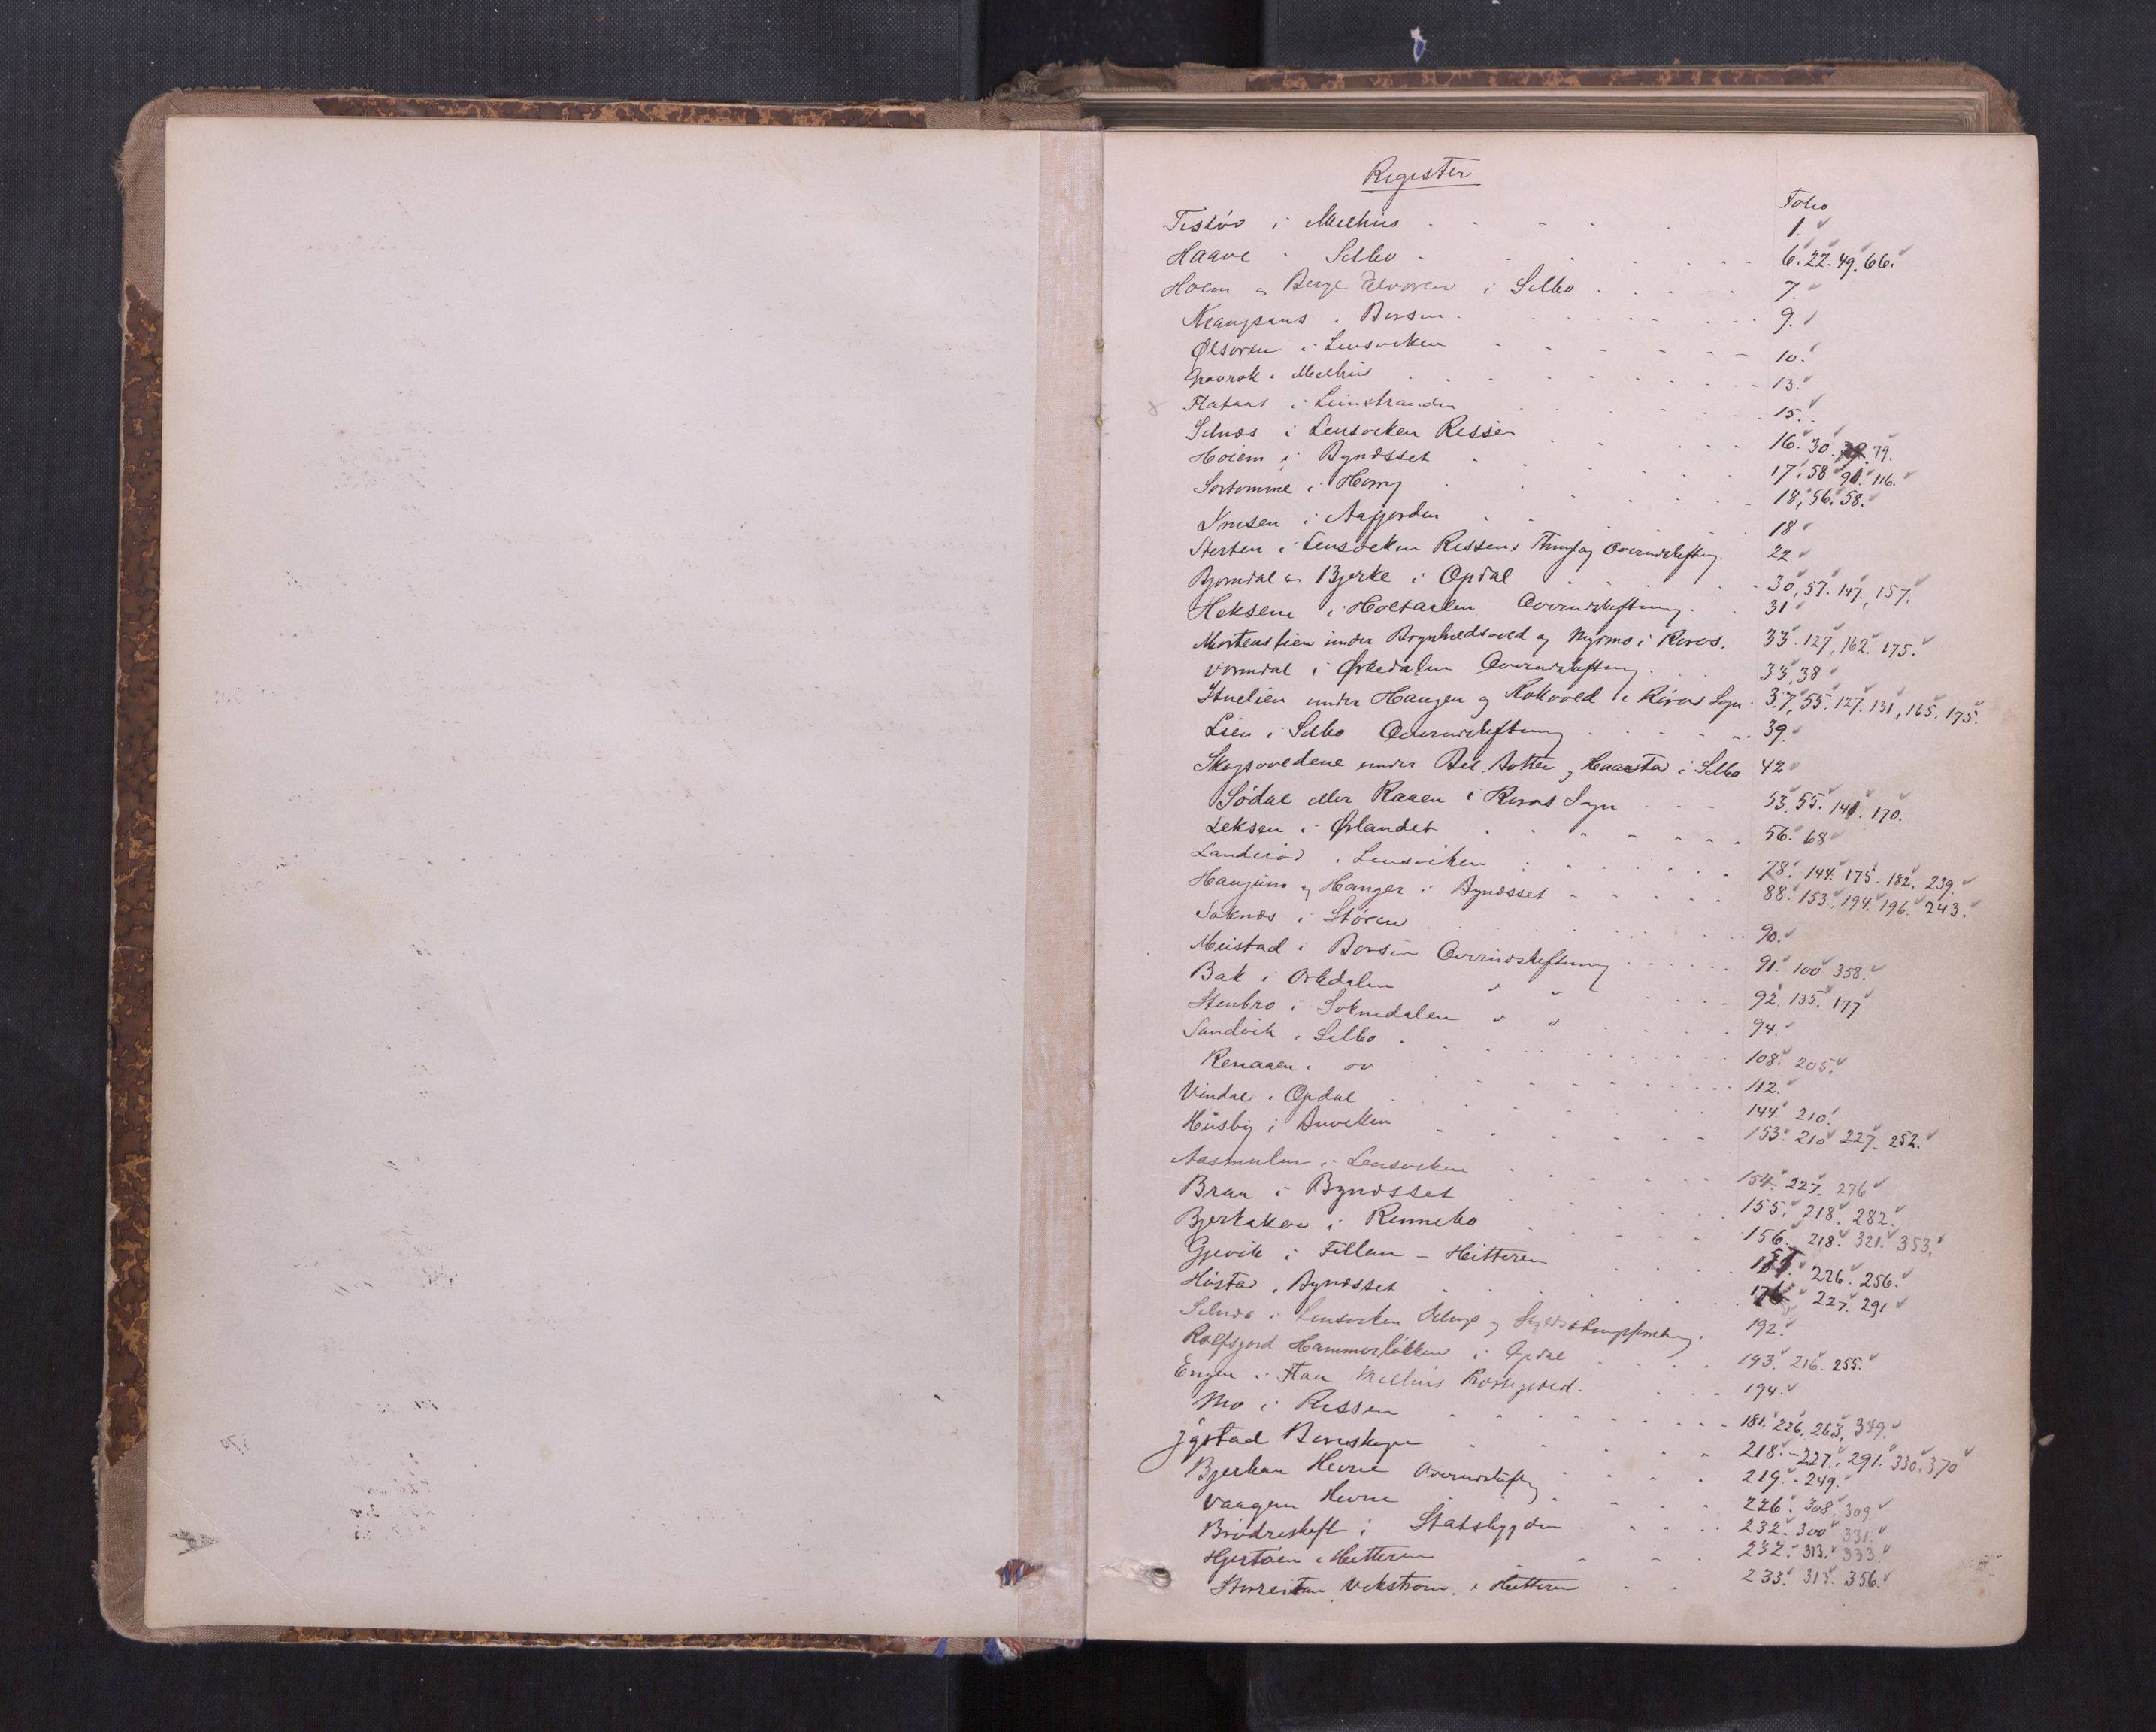 Register
Folio
Teslöv i Melhus 1.
Haave " Selbo 6. 22. 49. 66.
Hoem og Berge Elvoren i Selbo 7.
Krangsaas i Börsen 9.
Ølsoren i Lensviken 10.
Gravrok i Melhus 13.
Flataas i Leinstranden 15.
Selnæs i Lensviken Rissen 16. 30. 79.
Hoiem i Bynesset 17. 58 91. 116.
i Hevig 18, 56. 58.
i Aafjorden 18
Sterten i Lensviken Rissens Thinglag Overudskiftning. 22
Bjorndal og Bjerke i Opdal 30, 57. 147. 157.
Heksem i Holtaalen Overudskiftning. 31
Mortenslien under Brynhildsvold og Nyrmo i Röros. 33. 127, 162. 175.
Vormdal i Ørkedalen Overudskiftning 33, 38
Stuelien under Haugen og Kokvold i Röros Sogn. 37, 55. 127. 131, 165. 175.
Lien i Selbo Overudskiftning 39
Skogsvedene under Bel, Aftten og Kvarstad i Selbo 42
Södal eller Raaen i Röros Sogn 53. 55. 141. 170.
Leksen i Ørlandet 56. 68
Landerö i Lensviken 78. 144. 175. 182. 239.
Haugum og Hanger i Bynesset 88. 153. 194. 196. 243.
Soknæs i Stören 90.
Meistad i Börsen Overudskiftning 91. 100 358.
Bak i Orkedalen " " 92. 135. 177
Stenbro i Soknedalen " " 94.
Sandvik i Selbo 108. 205.
Renaaen i do 112.
Vindal i Opdal 144. 210.
Husby i Buviken 153. 210 227. 252.
Aasmulen i Lensviken 154. 227. 276
Braa i Bynesset 155. 218. 282.
Bjerkaker i Rennebo 156. 218. 321. 353.
Gjevik i Fillan - Hitteren 226. 256.
Höstad i Bynesset 227. 291
Selnes i Lensviken 192.
Rolfsjord Hammerlökken i Opdal 193. 216. 255.
Engen i Flaa Melhus Præstegjeld. 194.
Mo i Rissen 181. 226, 263, 349.
Jgstad Bureskogen 218. - 227. 291. 330. 370
Bjerkan Hevne Overudskiftn 219. - 249.
Vaagen Hevne 226. 308. 309.
Brödreskift i Statsbygden 232. 300 331.
Hjertöen i Hitteren 232. 313. 333.
Storreitan, Vikstrøm, i Hitteren 233. 315. 356.